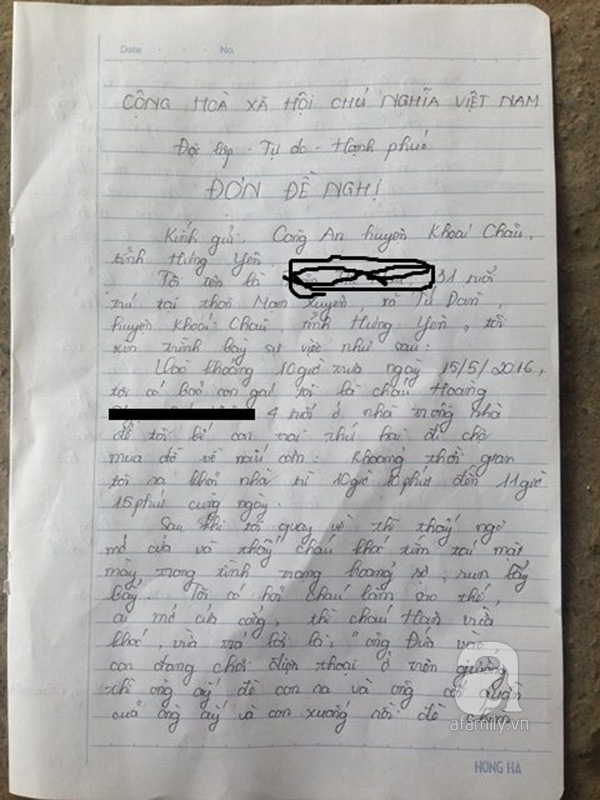 Date No.
CỘNG HOÀ XÃ HỘI CHỦ NGHĨA VIỆT NAM
Độc lập - Tự do - Hạnh phúc
ĐƠN ĐỀ NGHỊ
Kính gửi: Công An huyện Khoái Châu,
tỉnh Hưng Yên
Tôi tên là 31 tuổi
trú tại thôn Man Xuyên, xã Tứ Dân,
huyện Khoái Châu, tỉnh Hưng Yên, tôi
xin trình bày sự việc như sau:
Vào khoảng 10 giờ trưa ngày 15/5/2016,
tôi có bảo con gái tôi là cháu Hoàng
4 tuổi ở nhà trong nhà
để tôi bế con trai thứ hai đi chợ
mua đồ về nấu cơm. Khoảng thời gian
tôi ra khỏi nhà từ 10 giờ 10 phút đến 11 giờ
15 phút cùng ngày.
Sau khi tôi quay về thì thấy ngõ
mở cửa và thấy cháu khóc tím tái mặt
mày trong tình trạng hoảng sợ, run lẩy
bẩy. Tôi có hỏi cháu làm sao thế,
ai mở cửa cổng, thì cháu vừa
khóc, vừa trả lời là: "ông vào,
con đang chơi điện thoại ở trên giường
thì ông ấy đè con ra và ông cởi quần
của ông ấy và con xuống rồi đè
a
afamily.vn
HONG HA